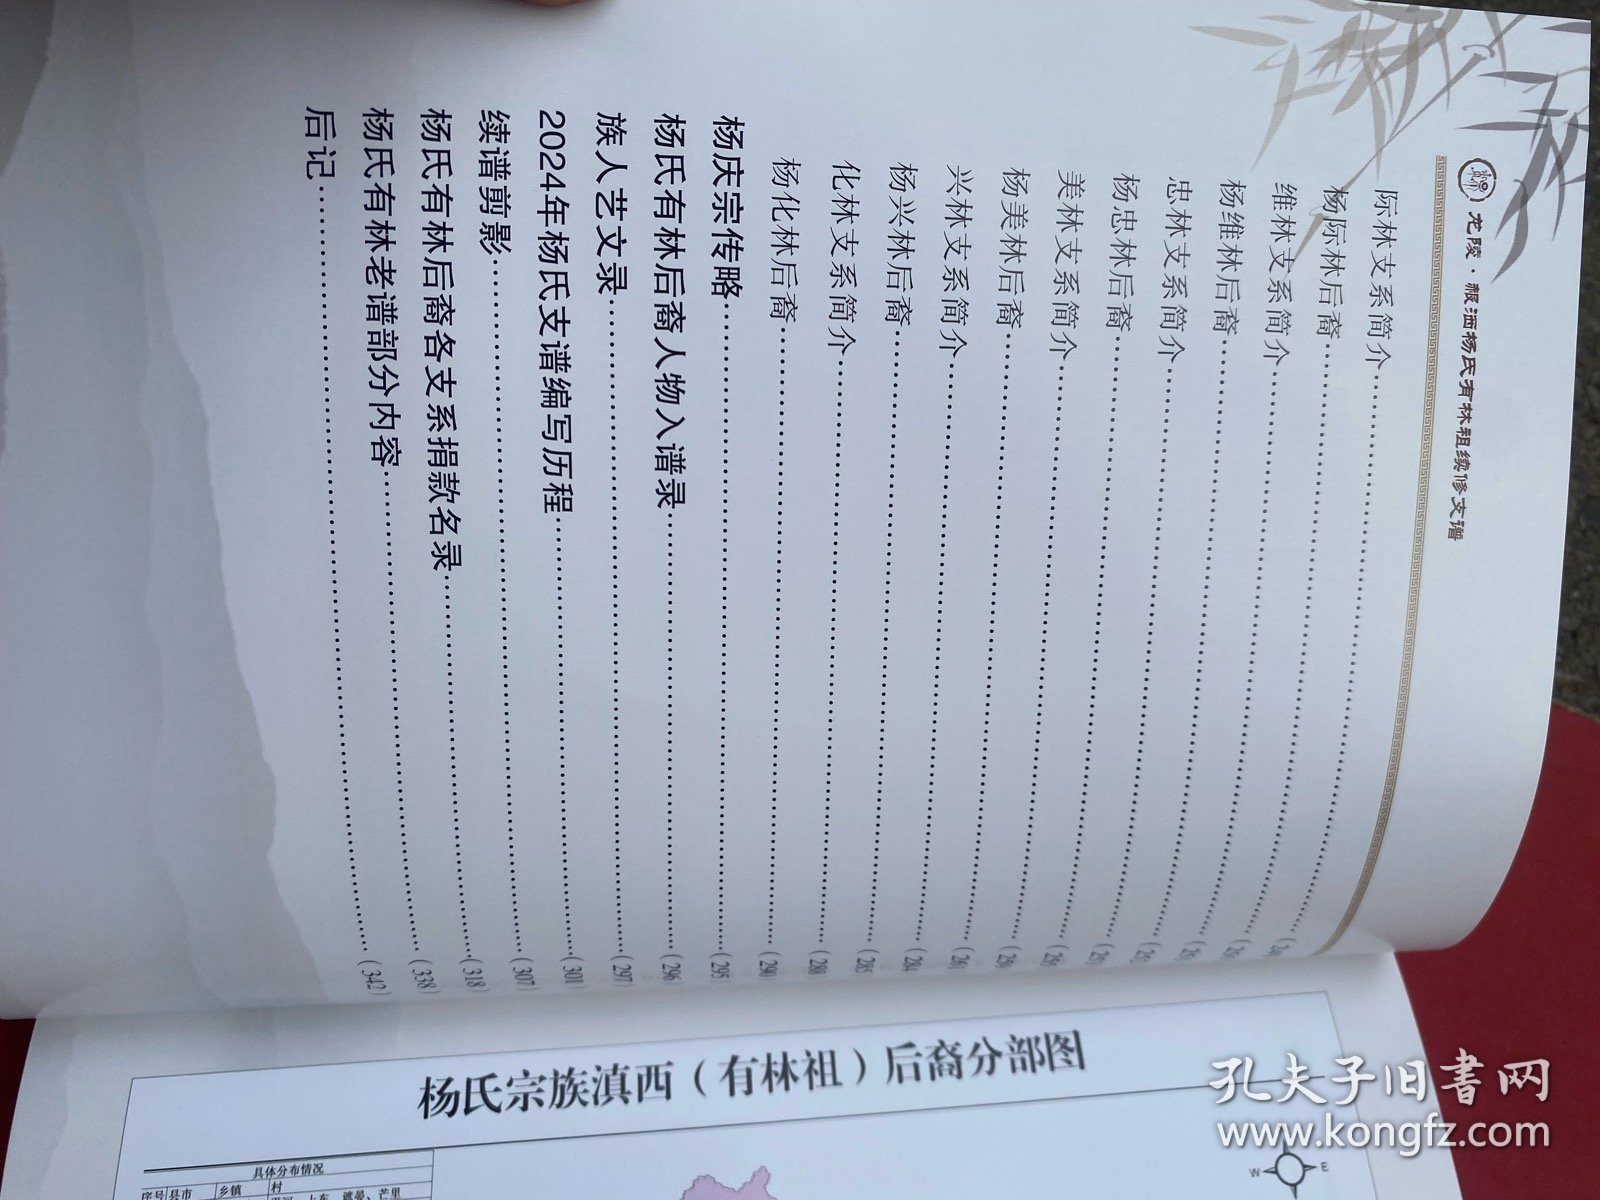 龙陵·赧洒杨氏有林祖续修支谱
际林支系简介
杨际林后裔
维林支系简介
杨维林后裔
忠林支系简介
杨忠林后裔
美林支系简介
杨美林后裔
兴林支系简介……(261
杨兴林后裔……(284
化林支系简介……(288
杨化林后裔……(290
杨庆宗传略……(295
杨氏有林后裔人物入谱录……(296
族人艺文录……(297
2024年杨氏支谱编写历程……(301)
续谱剪影……(307)
杨氏有林后裔各支系捐款名录……(318)
杨氏有林老谱部分内容……(338)
后记……(342)
杨氏宗族滇西（有林祖）后裔分部图
具体分布情况
序号 县市 乡镇 村
W E
孔夫子旧书网
www.kongfz.com